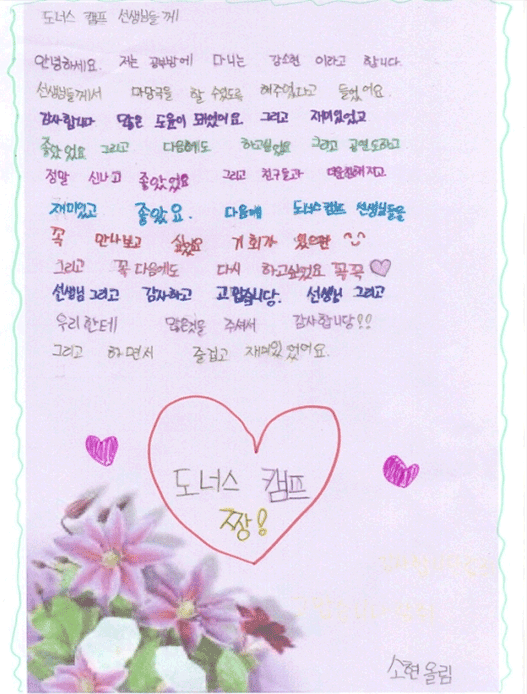 도너스 캠프 선생님들께
안녕하세요. 저는 공부방에 다니는 강소현 이라고 합니다.
선생님들께서 마당극을 할 수있도록 해주었다고 들었어요.
감사합니다 많은 도움이 되었어요 그리고 재미있었고
좋았었요 그리고 다음에도 하고싶었요 그리고 공연도하고
정말 신나고 좋았었요 그리고 친구들과 더욱친해지고
재미있고 좋았요. 다음에 도너스캠프 선생님들을
꼭 만나보고 싶었요 기회가 있으면
그리고 꼭 다음에도 다시 하고싶었요 꼭꼭
선생님 그리고 감사하고 고맙습니당. 선생님 그리고
우리한테 많은것을 주셔서 감사합니당!!
그리고 하면서 즐겁고 재미있었어요.
도너스 캠프
짱!
소현올림